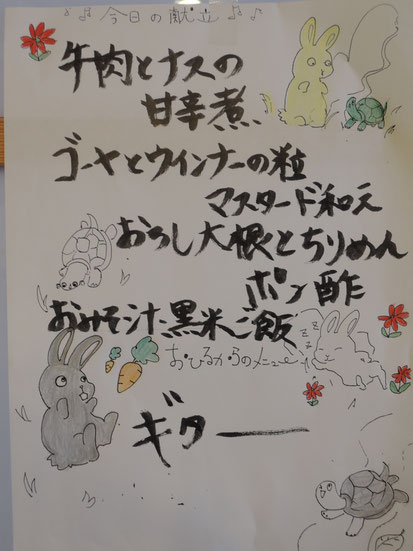 ♪♬今日の献立♬♪
牛肉とナスの
甘辛煮
ゴーヤとウインナーの粒
マスタード和え
おろし大根とちりめん
ポン酢
おみそ汁、黒米ご飯
zzz
おひるからのメニュー
ギター